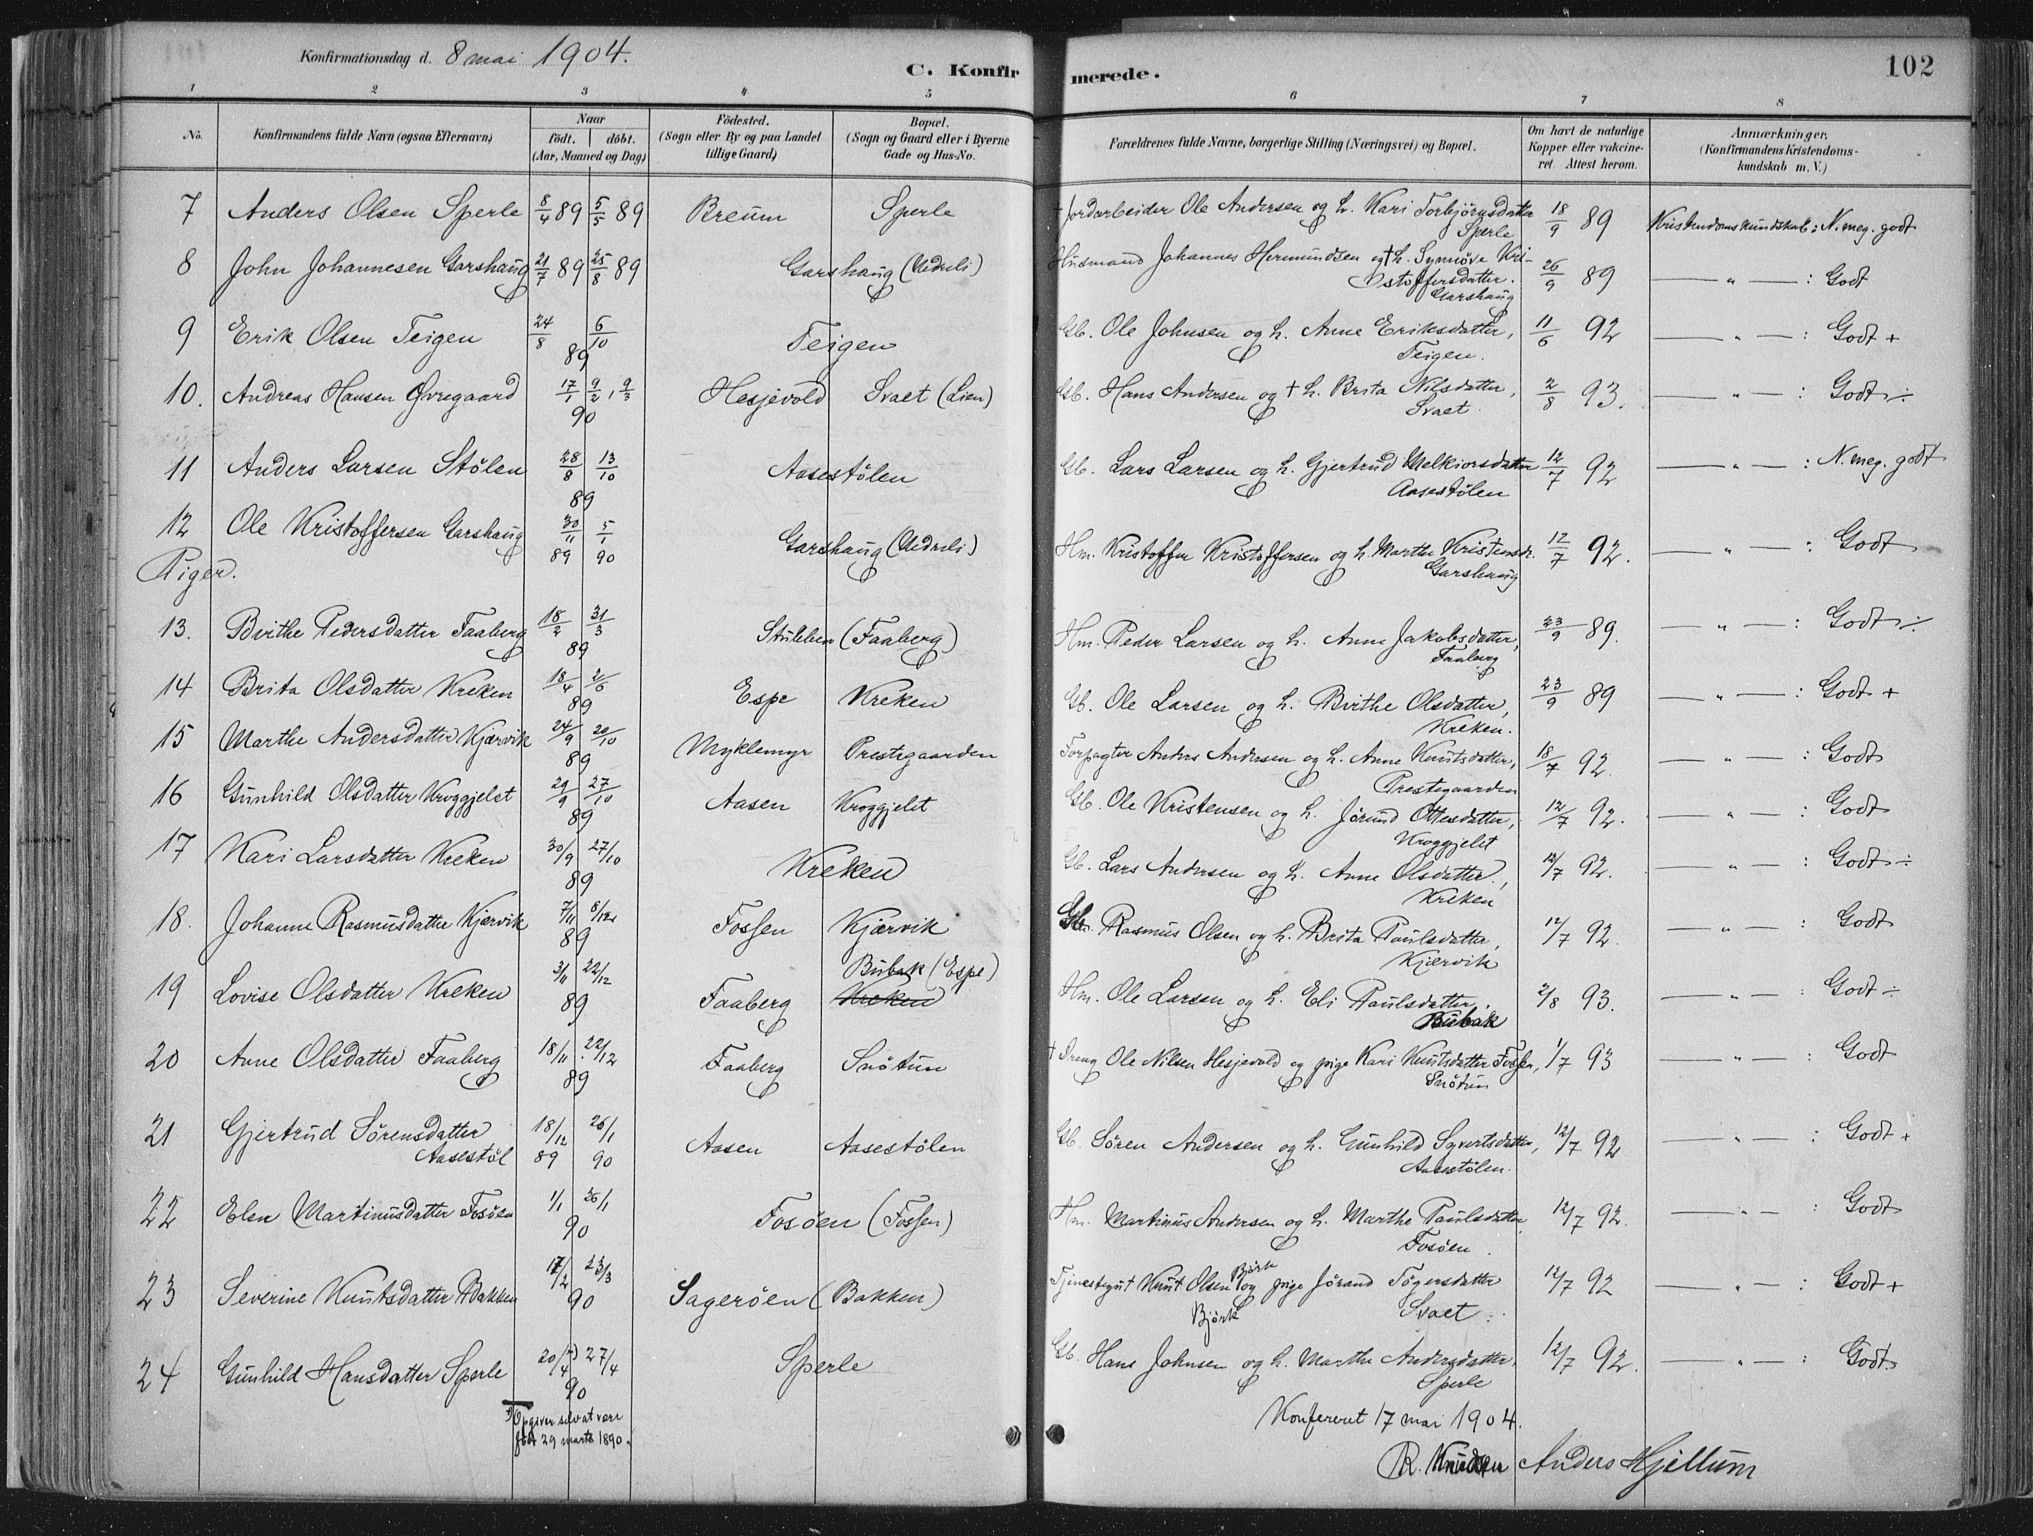 Konfirmationsdag d. 8 mai 1904.
C. Konfirmerede.
102
1 2 3 4 5 6 7 8
No. Konfirmandens fulde Navn (ogsaa Efternavn) Naar födt. döbt. (Aar, Maaned og Dag) Födested. (Sogn eller By og paa Landet tillige Gaard) Bopæl. (Sogn og Gaard eller i Byerne Gade og Hus-No. Forældrenes fulde Navne, borgerlige Stilling (Næringsvei) og Bopæl. Om havt de naturlige Kopper eller vakcineret. Attest herom. Anmærkninger. (Konfirmandens Kristendomskundskab m. V.)
7 Anders Olsen Sperle 8/4 89 5/5 89 Breum Sperle + Jordarbeider Ole Andersen og h. Kari Torbjørnsdatter Sperle 18/9 89 Kristendomskundskab: N. meg. godt
8 John Johannesen Garshaug 21/7 89 25/8 89 Garshaug (Nedreli) Husmand Johannes Hermundsen og + h. Synnøve Kristoffersdatter. Garshaug 26/9 89 — " — : Godt
9 Erik Olsen Teigen 24/8 6/10 89 Teigen Gb. Ole Johnsen og h. Anne Eriksdatter, Teigen. 11/6 92 — " — : Godt +
10. Andreas Hansen Øvregaard 17/1 9/2, 9/3 90 Hesjevold Svaet (Lien) Gb. Hans Andersen og + h. Brita Nilsdatter, Svaet. 2/8 93. — " — : Godt ÷
11 Anders Larsen Stølen 28/8 13/10 89 Aasestølen Gb. Lars Larsen og h. Gjertrud Melkiorsdatter Aasestølen 12/7 92 — " — : N. meg. godt
12 Ole Kristoffersen Garshaug 30/11 89 5/1 90 Garshaug (Nedreli) Hm. Kristoffer Kristoffersen og h. Marthe Kristensdr. Garshaug 12/7 92. — " — : Godt
Piger.
13. Brithe Pedersdatter Faaberg 18/2 31/3 89 (Faaberg) Hm. Peder Larsen og h. Anne Jakobsdatter, Faaberg 23/9 89. — " — : Godt ÷
14 Brita Olsdatter Kreken 18/4 2/6 89 Espe Kreken Gb. Ole Larsen og h. Brithe Olsdatter, Kreken. 23/9 89 — " — : Godt +
15 Marthe Andersdatter Kjærvik 24/9 20/10 89 Myklemyr Prestegaarden Forpagter Anders Andersen og h. Anne Knutsdatter, Prestegaarden 18/7 92. — " — : Godt
16 Gunhild Olsdatter Kroggjelet 29/9 27/10 89 Aasen Kroggjelet Gb. Ole Kristensen og h. Jørund Ottesdatter, Kroggjelet 12/7 92. — " — : Godt
17 Kari Larsdatter Kreken 30/9 27/10 89 Kreken Gb. Lars Andersen og h. Anne Olsdatter, Kreken 12/7 92. — " — : Godt ÷
18. Johanne Rasmusdatter Kjærvik 7/11 8/12 89 Fossen Kjærvik Gb. Rasmus Olsen og h. Brita Paulsdatter, Kjærvik 12/7 92. — " — : Godt
19 Lovise Olsdatter Kreken 3/11 22/12 89 Faaberg Bubak (Espe) Kreken Hm. Ole Larsen og h. Eli Paulsdatter. Bubak 2/8 93. — " — : Godt ÷
20 Anne Olsdatter Faaberg 18/11. 22/12 89 Faaberg Snøtun + Dreng Ole Nilsen Hesjevold og pige Kari Knutsdatter Fossen, Snøtun 1/7 93 — " — : Godt
21 Gjertrud Sørensdatter Aasestøl 18/12 89 26/1 90 Aasen Aasestølen Gb. Søren Andersen og h. Gunhild Syvertsdatter, Aasestølen. 12/7 92 — " — : Godt +
22 Elen Martinusdatter Fosøen 1/1 26/1 90 Fosøen (Fossen) Hm. Martinus Andersen og h. Marthe Paulsdatter Fosøen. 12/7 92. — " — : Godt
23 Severine Knutsdatter Bakken 17/2 23/3 90 Sagerøen (Bakken) Tjenestegut Knut Olsen Bjørk og pige Jørand Tøgersdatter Bjørk Svaet. 12/7 92 — " — : Godt +
24 Gunhild Hansdatter Sperle 20/4 27/4 90 Sperle Gb. Hans Johnsen og h. Marthe Andersdatter, Sperle 12/7 92. — " — : Godt
Opgiver selv at være
født 29 marts 1890.
Konfereret 17 mai 1904.
R. Knudsen Anders Hjellum